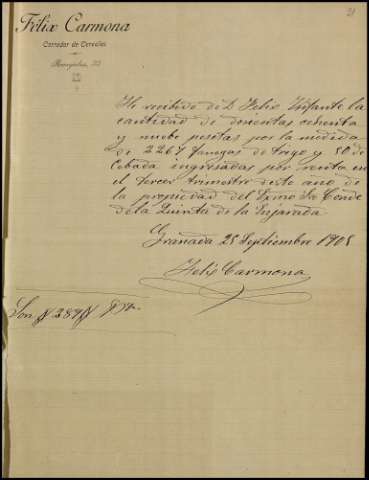 21
Félix Carmona
Corredor de Cereales
He recibido de D. Felix Infante la
cantidad de doscientas ochenta
y nueve pesetas por la medida
de 2267 fanegas de trigo y 50 de
Cebada ingresadas por renta en
el tercer trimestre de este año de
la propiedad del Exmo Sr Conde
de la Quinta de la Enjarada
Granada 25 Septiembre 1905
Felix Carmona
Son # 289 # Ptas.